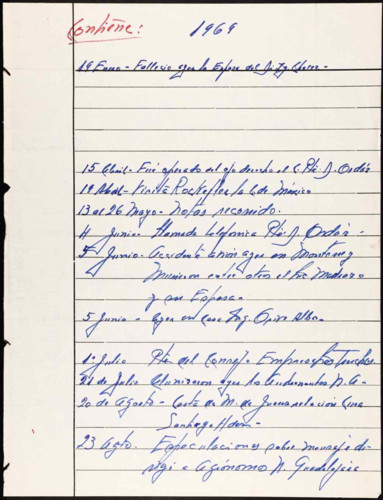 Contiene:
1969
19 Enero - Fallecio ayer la Esposa del
15 Abril - Fué operado del ojo derecho el C. Pte. D. Ordáz
19 Abril - Visita Rockefeller la C. de México
13 al 26 Mayo - Notas recorrido.
4 Junio - Llamada telefonica Pte. D. Ordáz -
5 Junio - Accidente avion ayer en Monterrey
Murieron entre otros el Lic. Madrazo
y su Esposa -
5 Junio - ayer en casa Ing.
1º Julio Pte. del Consejo Empresas
21 de Julio Alunizaron ayer los N. A -
20 de Agosto - Carta de M. de
Santiago
23 Agto. Especulaciones sobre mensaje
a Agrónomo N. Guadalajara